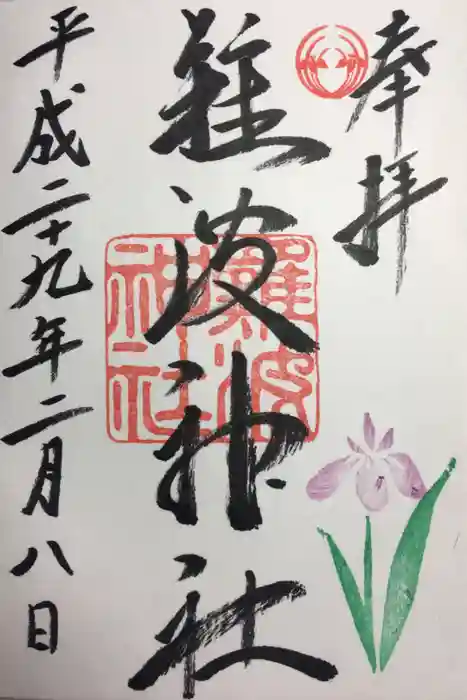 奉拝
難波神社
難波神社
平成二十九年二月八日